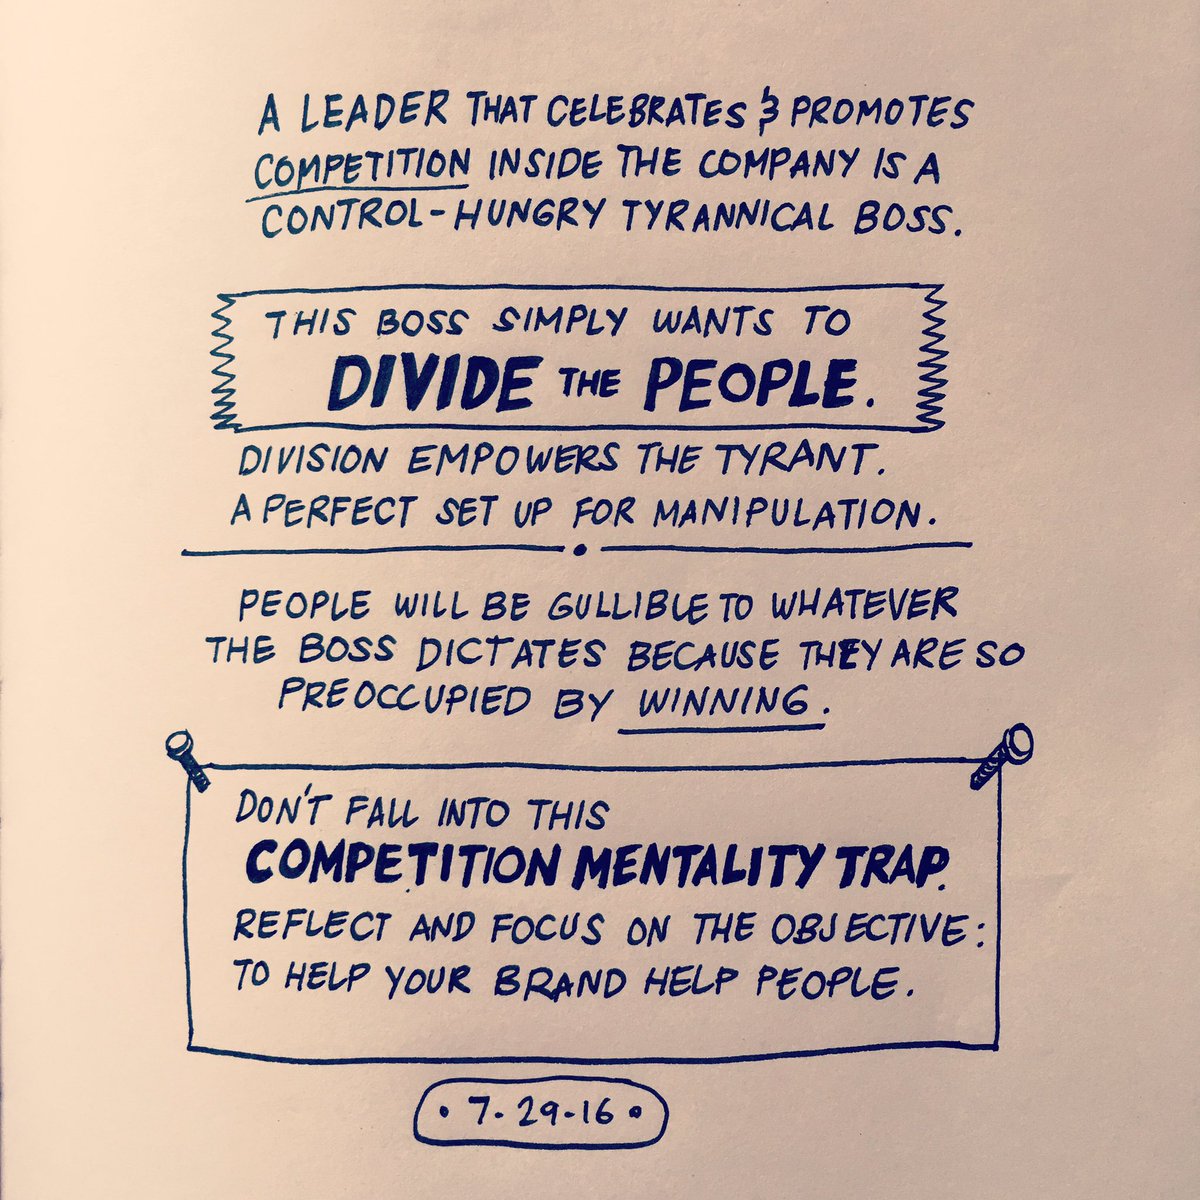 A LEADER THAT CELEBRATES & PROMOTES
COMPETITION INSIDE THE COMPANY IS A
CONTROL-HUNGRY TYRANNICAL BOSS.
THIS BOSS SIMPLY WANTS TO
DIVIDE THE PEOPLE.
DIVISION EMPOWERS THE TYRANT.
A PERFECT SET UP FOR MANIPULATION.
PEOPLE WILL BE GULLIBLE TO WHATEVER
THE BOSS DICTATES BECAUSE THEY ARE SO
PREOCCUPIED BY WINNING.
DON'T FALL INTO THIS
COMPETITION MENTALITY TRAP.
REFLECT AND FOCUS ON THE OBJECTIVE:
TO HELP YOUR BRAND HELP PEOPLE.
• 7-29-16 •